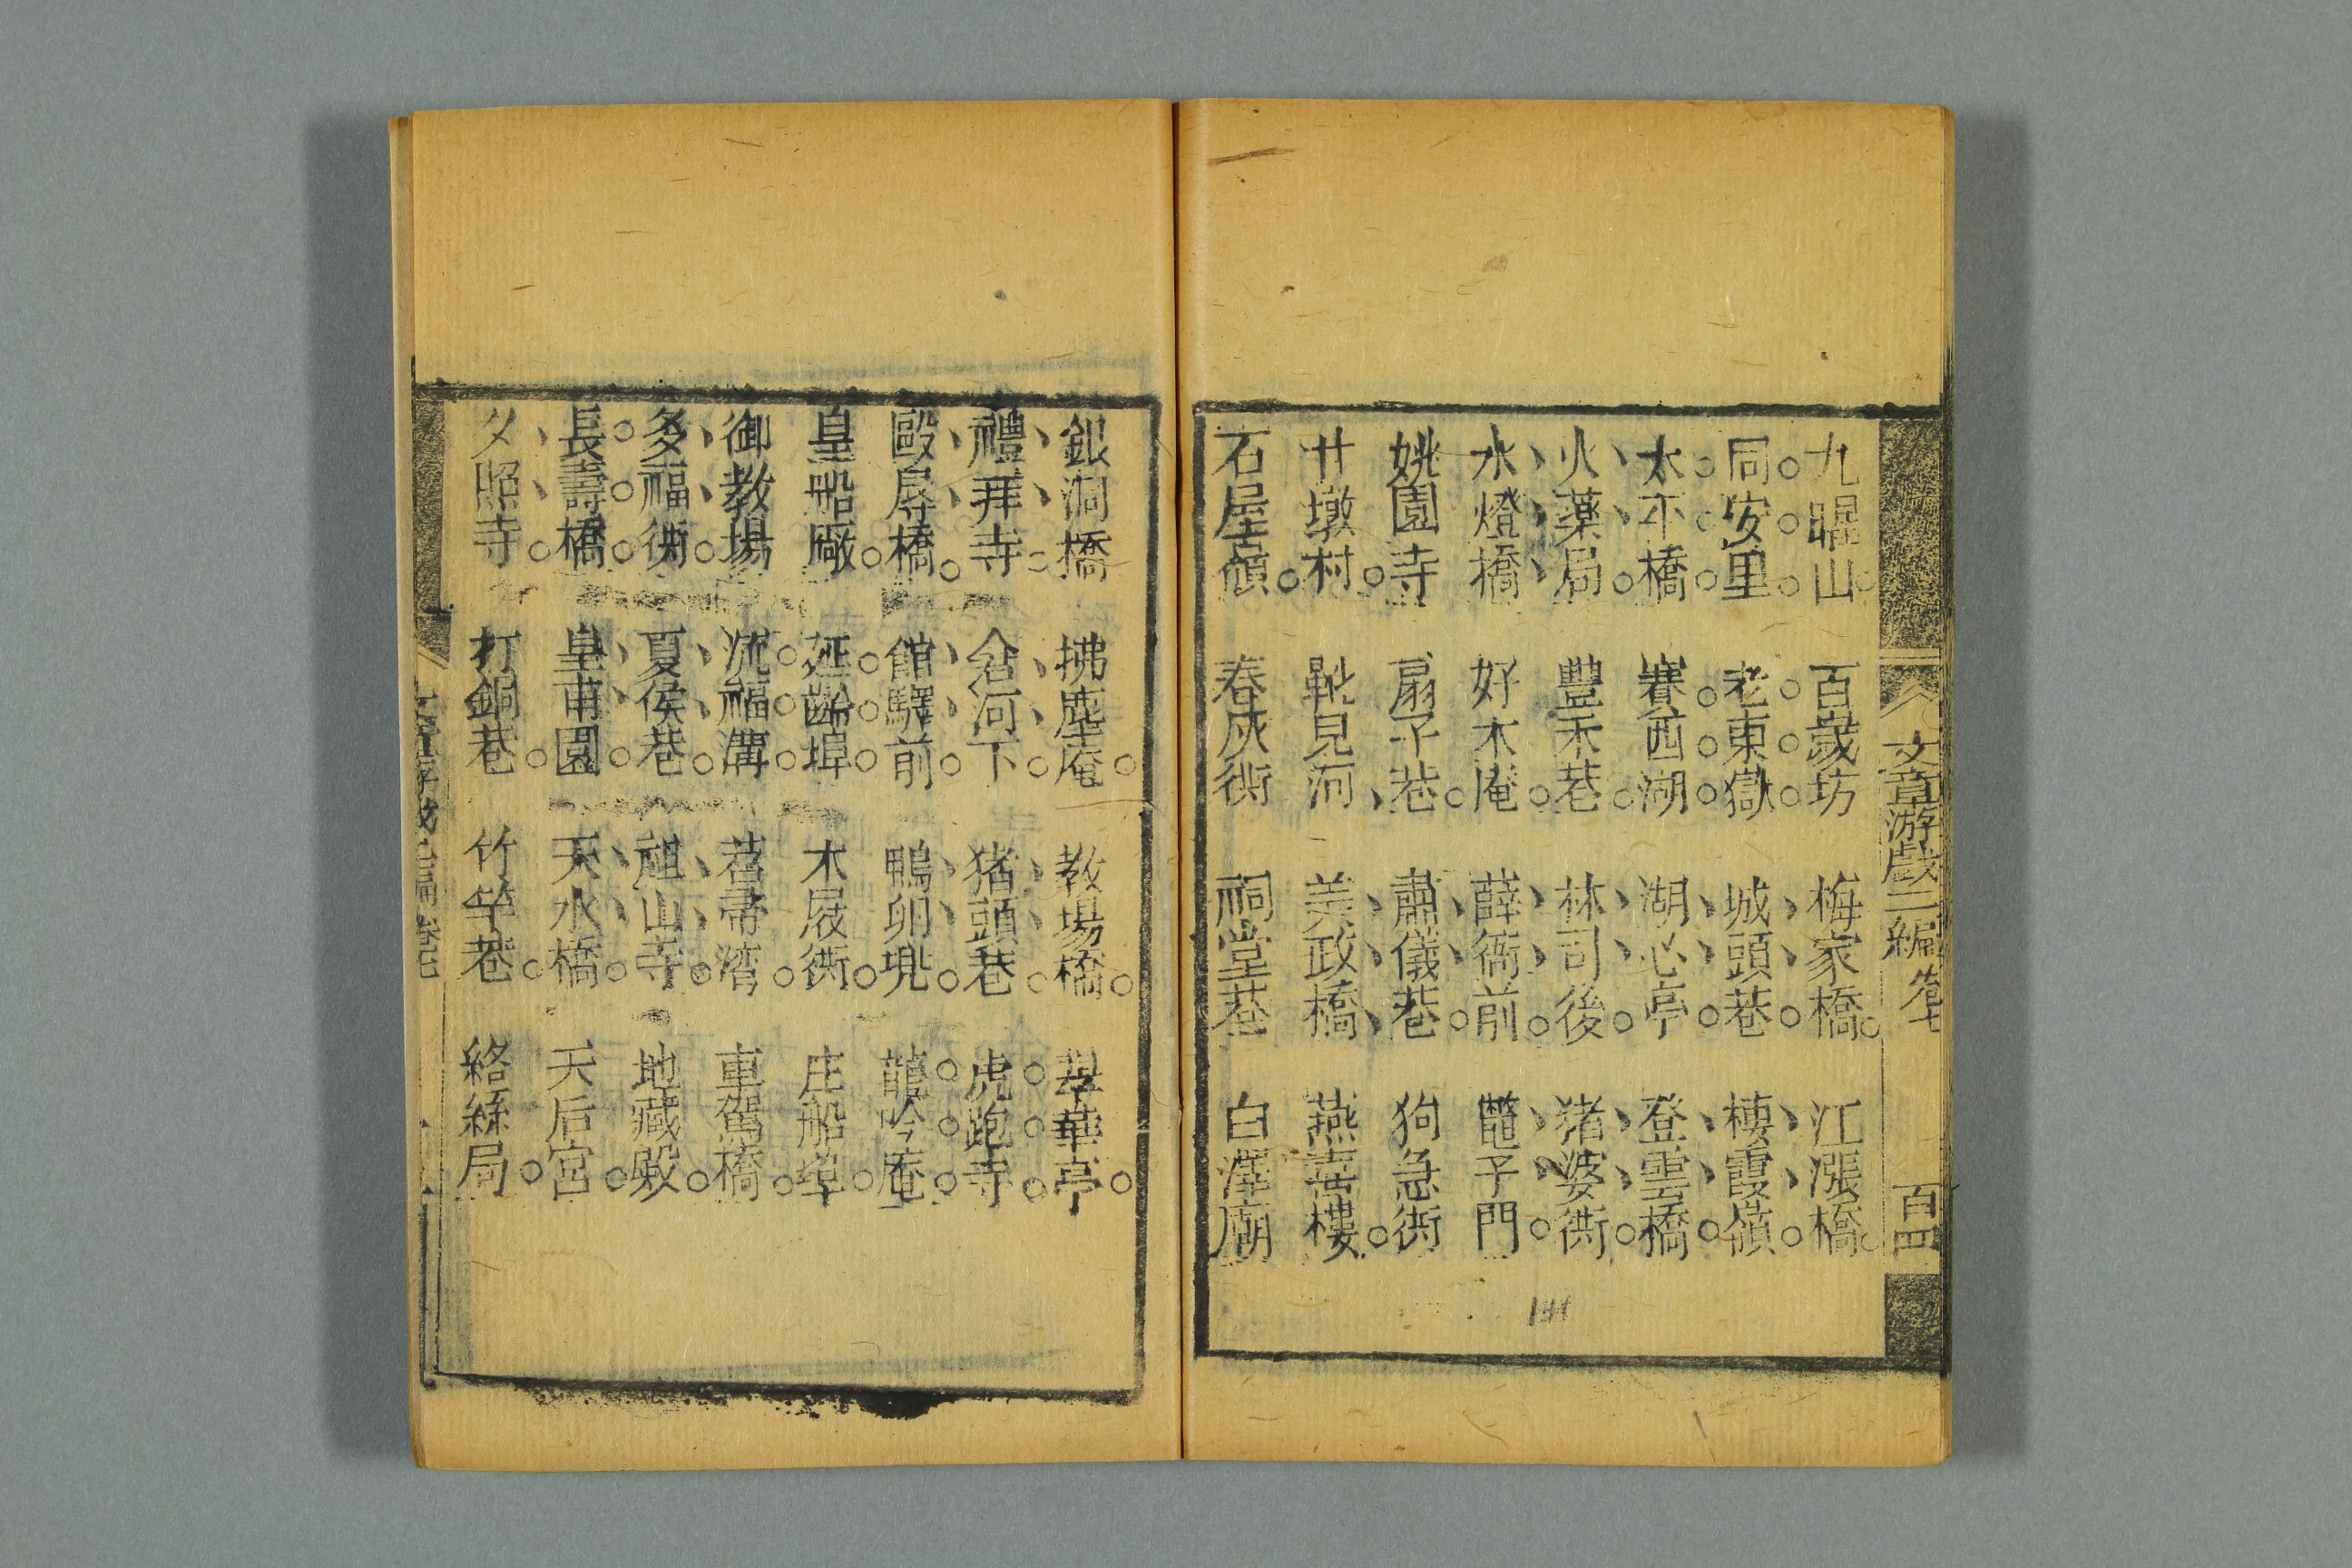 文章游戲三編 卷七 百四
九曜山 百歲坊 梅家橋 江漲橋
同安里 老東嶽 城頭巷 棲霞嶺
太平橋 賽西湖 湖心亭 登雲橋
火藥局 豐禾巷 林司後 猪婆衖
水燈橋 好木庵 薛衙前 鼈子門
姚園寺 扇子巷 肅儀巷 狗急衖
廿墩村 靴見河 美政橋 燕喜樓
石屋嶺 春灰衖 祠堂巷 白澤廟
銀洞橋 拂塵庵 教場橋 翠華亭
禮拜寺 倉河下 猪頭巷 虎跑寺
毆辱橋 館驛前 鴨卵兜 龍吟庵
皇船廠 延齡埠 木屐衖 庄船埠
御教場 流福溝 苕帚湾 車駕橋
多福衖 夏侯巷 祖山寺 地藏殿
長壽橋 皇甫園 天水橋 天后宮
夕照寺 打銅巷 竹竿巷 絡絲局
文章游戲三編 卷七